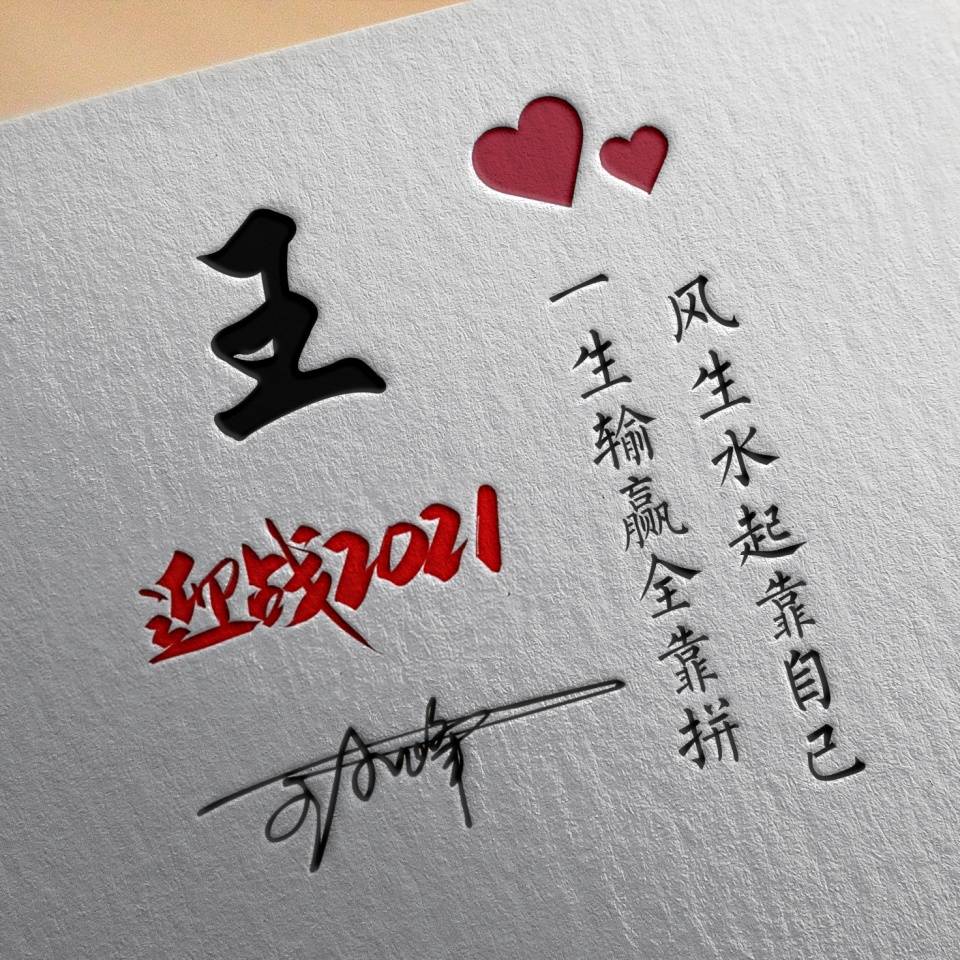 王
迎战2021
风生水起靠自己
一生输赢全靠拼